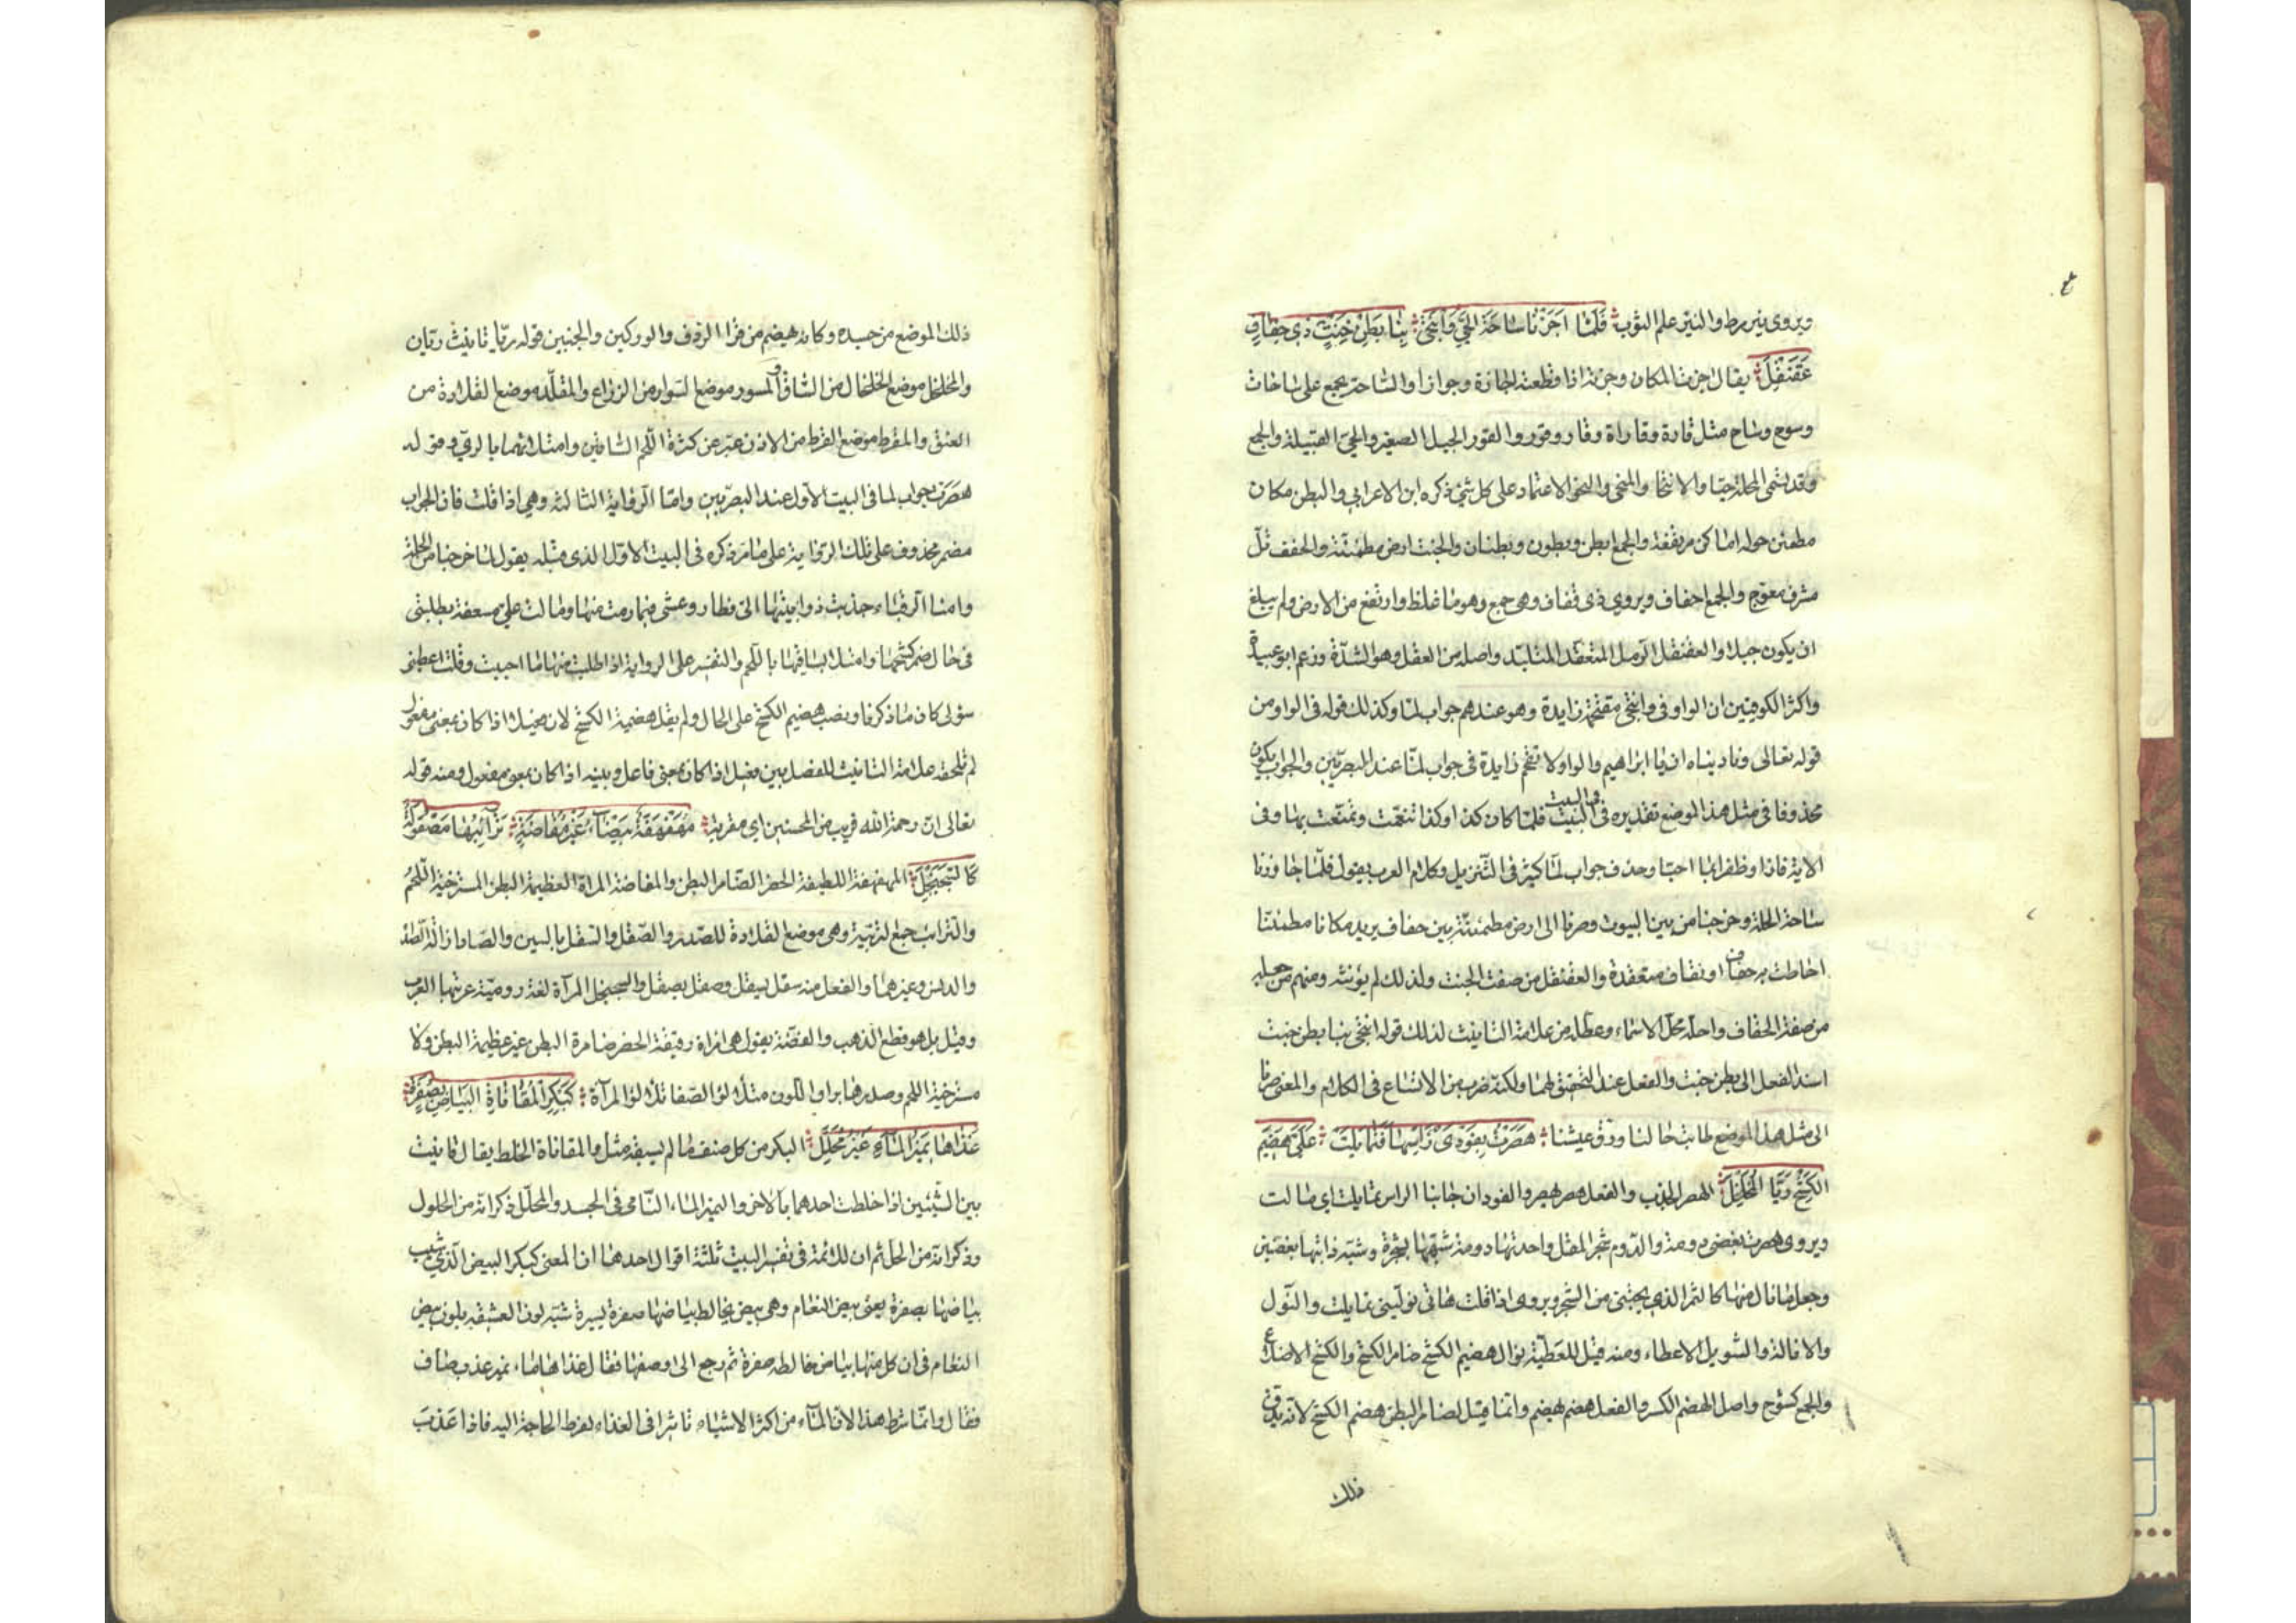 ويروى نير مرط والنير علم الثوب فَلَمّا اَجَزْنَا سَاحَةَ الحَيِّ وَانْتَحَىٰ بِنَا بَطْنُ خَبْتٍ ذِي حِقَافٍ
عَقَنْقَلِ يقال اجزت المكان وجزته اذا قطعته اجازة وجوازا والساحة تجمع على ساحات
وسوح وساح مثل قارة وقارات وقار وقور والقور الجبيل الصغير والحي القبيلة والجمع
وقد يسمى الحلة حيا والانتحا والتنحى والنحو الاعتماد على كل شئ ذكره ابن الاعرابي والبطن مكان
مطمئن حوله اماكن مرتفعة والجمع ابطن وبطون وبطنان والخبت ارض مطمئنة والحقف تل
مشرف معوج والجمع احقاف ويروى ذى قفاف وهي جمع وهو ما غلظ وارتفع من الارض ولم يبلغ
ان يكون جبلا والعقنقل الرمل المنعقد المتلبد واصله من العقل وهو الشدة وزعم ابو عبيدة
واكثر الكوفيين ان الواو في وانتحى مقحمة زايدة وهو عندهم جواب لما وكذلك قوله في الواو من
قوله تعالى وناديناه ان يا ابراهيم والواو لا تقحم زايدة في جواب لما عند البصريين والجواب يكون
محذوفا في مثل هذا الموضع تقديره في البيت فلما كان كذا وكذا تنعمت وتمتعت بها وفي
الاية فاذا وظفرا بما احبا وحذف جواب لما كثير في التنزيل وكلام العرب يقول فلما جاوزنا
ساحة الحلة وخرجنا من بين البيوت وصرنا الى ارض مطمئنة بين حقاف يريد مكانا مطمئنا
احاطت به حقاف او قفاف منعقدة والعقنقل من صفة الخبت ولذلك لم يؤنثه ومنهم من جعله
من صفة الحقاف واحله محل الاسماء وعطله من علامة التانيث لذلك قوله انتحى بنا بطن خبت
اسند الفعل الى بطن خبت والفعل عند التحقيق لهما ولكنه ضرب من الاتساع في الكلام والمعنى صرنا
الى مثل هذا الموضع طابت حالنا ورق عيشنا هَصَرْتُ بِفَوْدَىْ رَأسِهَا فَتَمَايَلَتْ عَلَىَّ هَضِيمَ
الكَشْحِ رَيَّا المُخَلْخَلِ الهصر الجذب والفعل هصر يهصر والفودان جانبا الراس تمايلت اي مالت
ويروى هصرت بغصنى دومة والدوم شجر المقل واحدتها دومة شبهها بشجرة وشبه ذابتها بغصنين
وجعل ما نال منها كالثمر الذي يجتنى من الشجر ويروى اذا قلت هاتى نولينى تمايلت والنول
والانالة والتنويل الاعطاء ومنه قيل للعطية نوال هضيم الكشح ضامر الكشح والكشح الاضلاع
والجمع كشوح واصل الهضم الكسر والفعل هضم يهضم وانما قيل لضامر البطن هضيم الكشح لانه يدق
ذلك
ذلك الموضع من جسده وكانه هضيم من قرا الردف والوركين والجنبين قوله ريا تانيث ريان
والمخلخل موضع الخلخال من الساق والمسور موضع السوار من الذراع والمقلد موضع القلادة من
العنق والمقرط موضع القرط من الاذن عبر عن كثرة اللحم الساقين وامتلائهما بالري وقوله
هصرت جواب لما في البيت الاول عند البصريين واما الرواية الثالثة وهي اذا قلت فان الجواب
مضمر محذوف على تلك الرواية على ما مر ذكره في البيت الاول الذي قبله يقول لما خرجنا من الحلة
وامنا الرقباء جذبت ذوابتيها الى فطاوعتنى فيما رمت منها ومالت على مسعفة بطلبتى
في حال ضمر كشحها وامتلا ساقيها باللحم والتفسير على الرواية اذا طلبت منها ما احببت وقلت اعطنى
سؤلى كان ما ذكرنا ونصب هضيم الكشح على الحال ولم يقل هضيمة الكشح لان فعيلا اذا كان بمعنى مفعول
لم تلحقه علامة التانيث للفصل بين فعيل اذا كان بمعنى فاعل وبينه اذا كان بمعنى مفعول ومنه قوله
تعالى ان رحمة الله قريب من المحسنين اي مقربة مُهَفْهَفَةٌ بَيْضَآءُ غَيْرُ مُفَاضَةٍ تَرَآئِبُهَا مَصْقُولَةٌ
كَالسَّجَنْجَلِ المهفهفة اللطيفة الخصر الضامر البطن والمفاضة المراة العظيمة البطن المسترخية اللحم
والترائب جمع التريبة وهي موضع القلادة للصدر والصقل والسقل بالسين والصاد ازالة الصدا
والدنس وغيرهما والفعل منه سقل يسقل وصقل يصقل والسجنجل المرآة لغة رومية عربتها العرب
وقيل بل هو قطع الذهب والفضة يقول هي امراة دقيقة الخصر ضامرة البطن غير عظيمة البطن ولا
مسترخية اللحم وصدرها براق اللون متلالؤ الصفا تلالؤ المرآة كَبِكْرِ المُقَانَاةِ البَيَاضَ بِصُفْرَةٍ
غَذَاهَا نَمِيْرُ المَآءِ غَيْرُ مُحَلَّلِ البكر من كل صنف ما لم يسبقه مثل والمقاناة الخلط يقال قانيت
بين الشيئين اذا خلطت احدهما بالاخر والنمير الماء النامى في الجسد والمحلل ذكر انه من الحلول
وذكر انه من الحل ثم ان للائمة في تفسير البيت ثلثة اقوال احدها ان المعنى كبكر البيض الذي شيب
بياضها بصفرة يعنى بيض النعام وهي بيض يخالط بياضها صفرة يسيرة شبه لون العشيقة بلون بيض
النعام في ان كل منها بياض خالطه صفرة ثم رجع الى وصفها فقال غذاها ماء نمير عذب صاف
فقال وانما شرط هذا لان المآء من اكثر الاشياء تاثيرا في الغذاء لفرط الحاجة اليه فاذا عذب